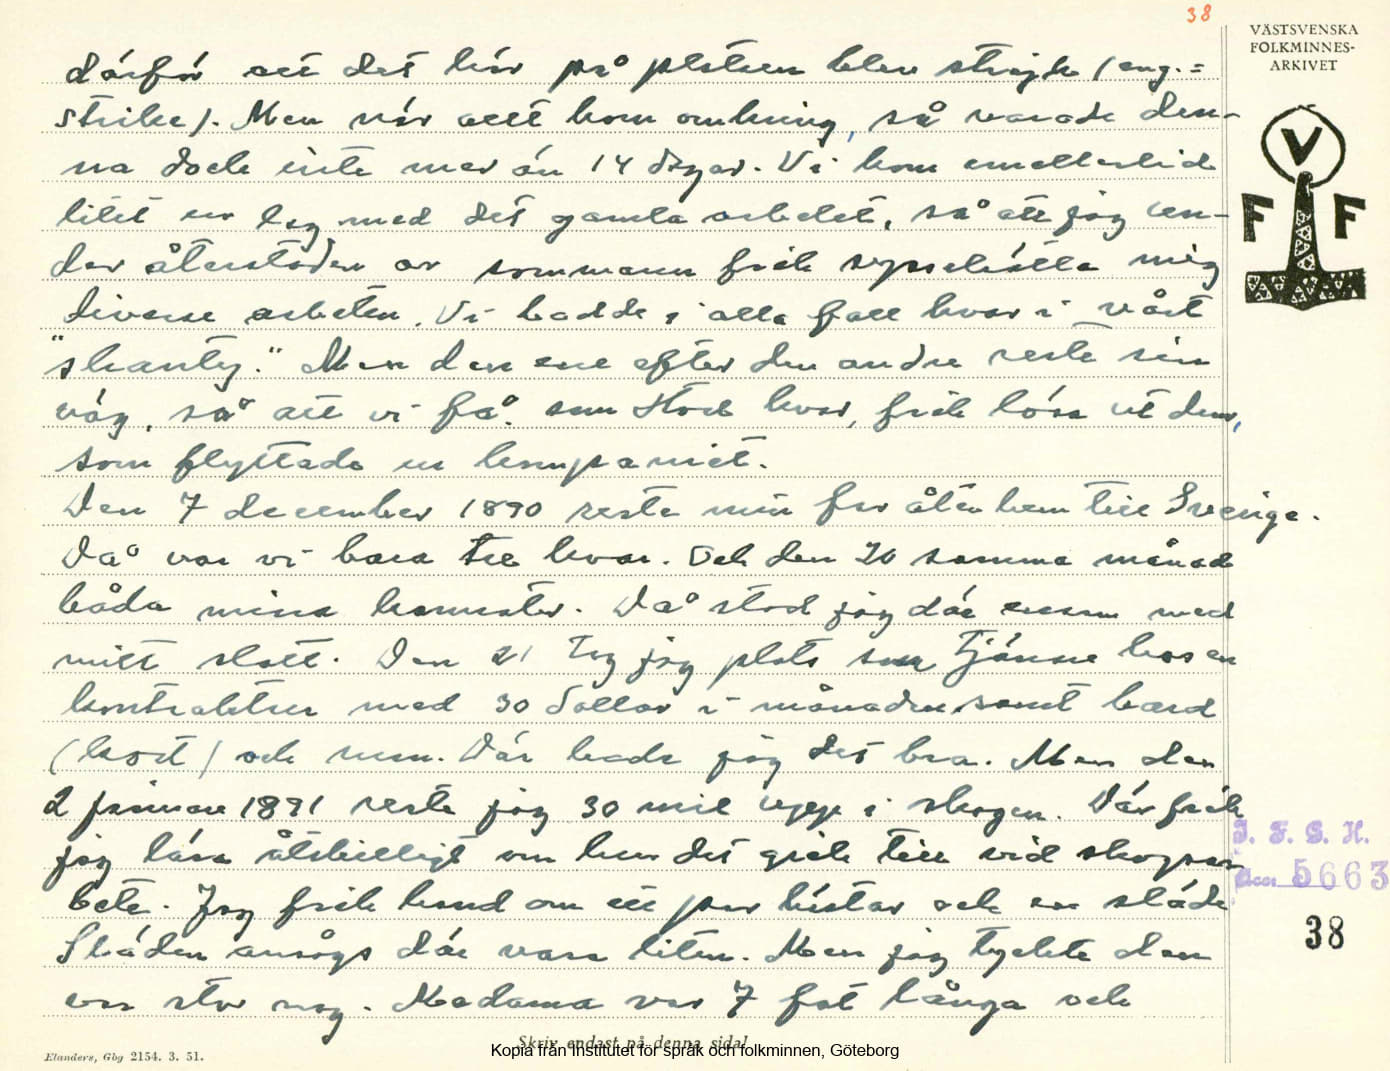 38
VÄSTSVENSKA
FOLKMINNES-
ARKIVET
därför att det här på platsen blev strejk (eng. =
strike). Men när allt kom omkring, så varade den-
na dock inte mer än 14 dagar. Vi kom emellertid
litet ur lag med det gamla arbetet, så att jag un-
der återstoden av sommaren fick sysselsätta mig
diverse arbeten. Vi hadde i alla fall kvar i vårt
"shanty." Men den ene efter den andre reste sin
väg, så att vi få, som stod kvar, fick lösa ut dem,
som flyttade ur kompaniet.
Den 7 december 1890 reste min far åter hem till Sverige.
Då var vi bara tre kvar. Och den 20 samma månad
båda mina kamrater. Då stod jag där ensam med
mitt slott. Den 21 tog jag plats som tjänare hos en
kontraktor med 30 dollar i månaden, samt board
(kost) och rum. Där hade jag det bra. Men den
2 januari 1891 reste jag 30 mil uppe i skogen. Där fick
jag lära åtskilligt om hur det gick till vid skogsar-
bete. Jag fick hand om ett par hästar och en släde
Släden ansågs där vara liten. Men jag tyckte den
var stor nog. Medarna var 7 fot långa och
V
F F
I. F. G. H.
Acc. 5663
38
Skriv endast på denna sida!
Kopia från Institutet för språk och folkminnen, Göteborg
Elanders, Gbg 2154. 3. 51.